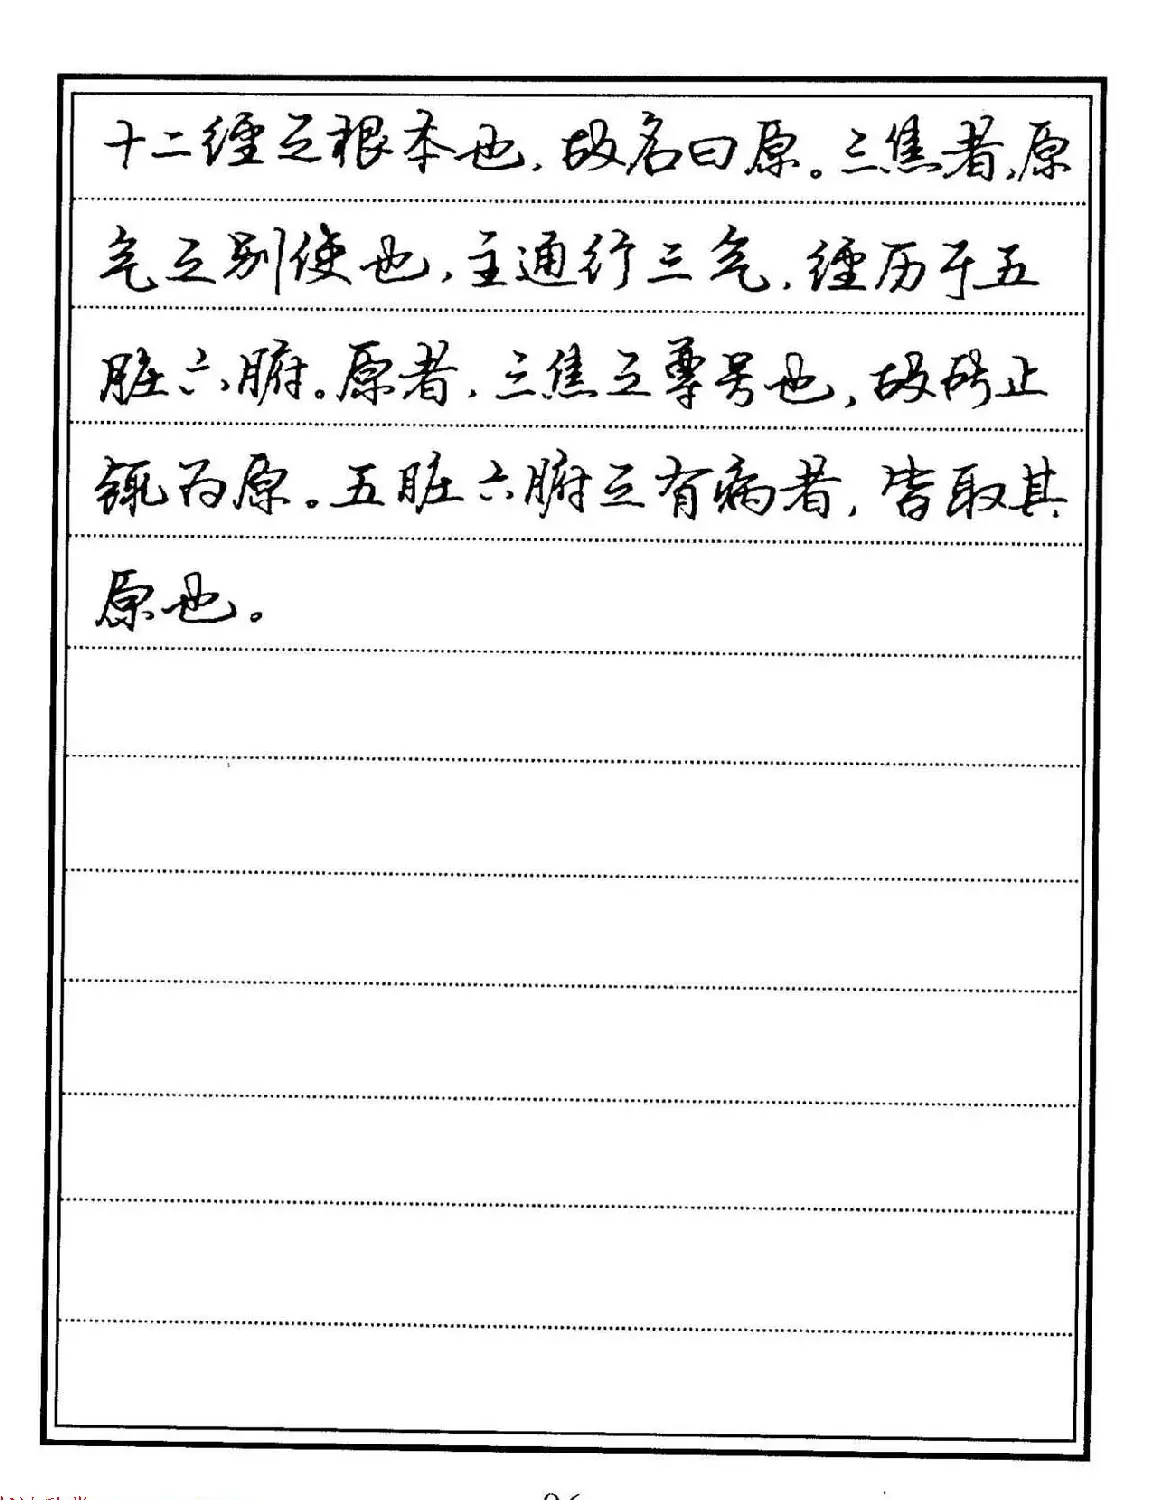 十二经之根本也,故名曰原。三焦者,原
气之别使也,主通行三气,经历于五
脏六腑。原者,三焦之尊号也,故所止
辄为原。五脏六腑之有病者,皆取其
原也。